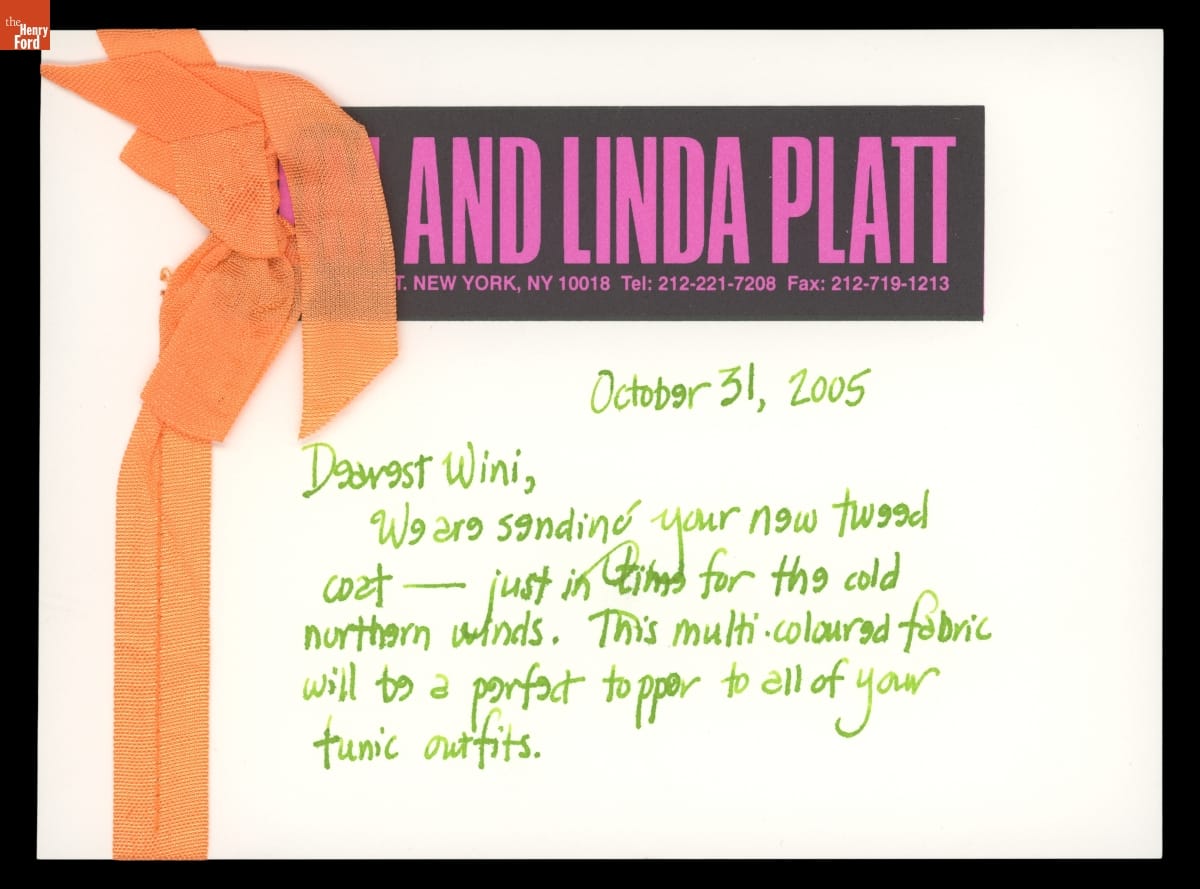 the
Henry
Ford
AND LINDA PLATT
T. NEW YORK, NY 10018 Tel: 212-221-7208 Fax: 212-719-1213
October 31, 2005
Dearest Wini,
We are sending your new tweed
coat — just in time for the cold
northern winds. This multi-coloured fabric
will be a perfect topper to all of your
tunic outfits.